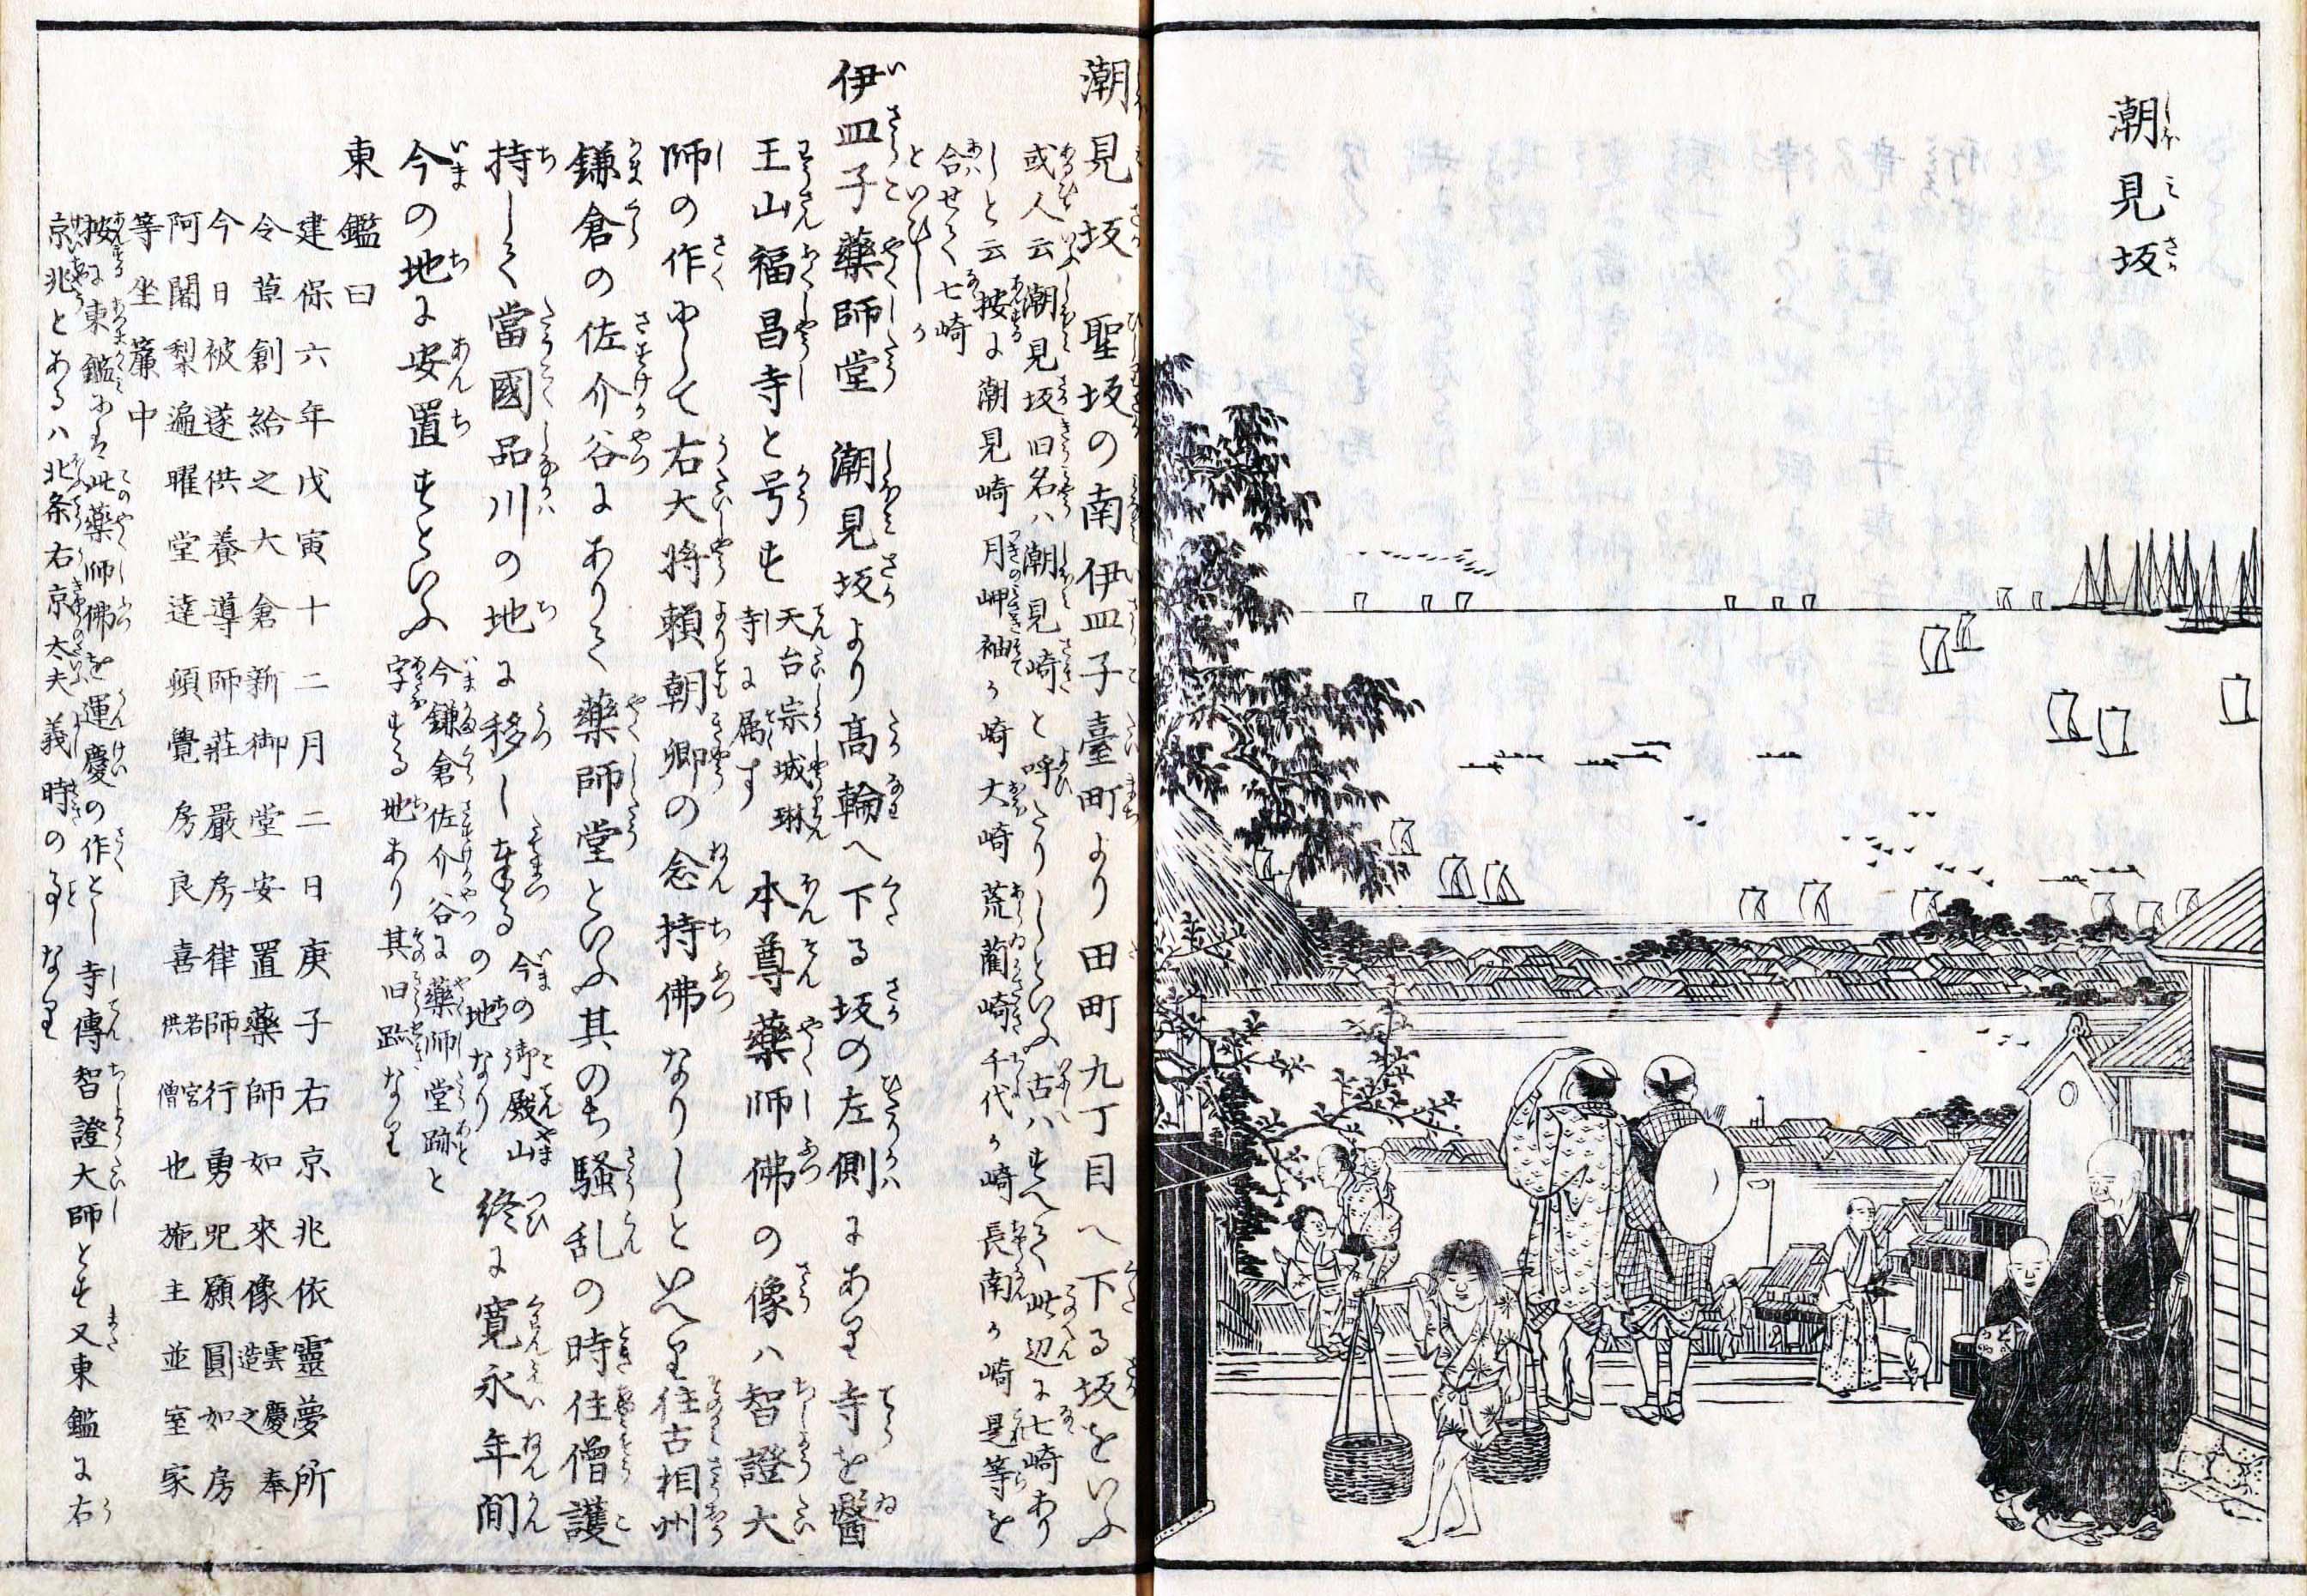 潮見坂
潮見坂 聖坂の南伊皿子臺町より田町九丁目へ下る坂をいふ
或人云潮見坂旧名ハ潮見崎と呼たりしといふ古ハすへて此辺に七崎あり
しと云按に潮見崎月岬袖か崎大崎荒藺崎千代か崎長南か崎是等を
合せて七崎
といひしか
伊皿子藥師堂 潮見坂より高輪へ下る坂の左側にあり寺を醫
王山福昌寺と号す 天台宗城琳
寺に属す 本尊藥師佛の像ハ智證大
師の作にして右大将頼朝卿の念持佛なりしといへり往古相州
鎌倉の佐介谷にありて藥師堂といふ其のち騒乱の時住僧護
持して當國品川の地に移し奉る 今の御殿山
の地なり 終に寛永年間
今の地に安置すといふ 今鎌倉佐介谷に藥師堂跡と
字する地あり其旧跡なり
東鑑曰
建保六年戊寅十二月二日庚子右京兆依靈夢所
令草創給之大倉新御堂安置藥師如來像雲慶奉
造之
今日被遂供養導師莊嚴房律師行勇咒願圓如房
阿闍梨遍曜堂達頓覺房良喜若宮
供僧也施主並室家
等坐簾中
按に東鑑にハ此藥師佛を運慶の作とし寺傳智證大師とす又東鑑に右
京兆とあるハ北条右京太夫義時の事なり